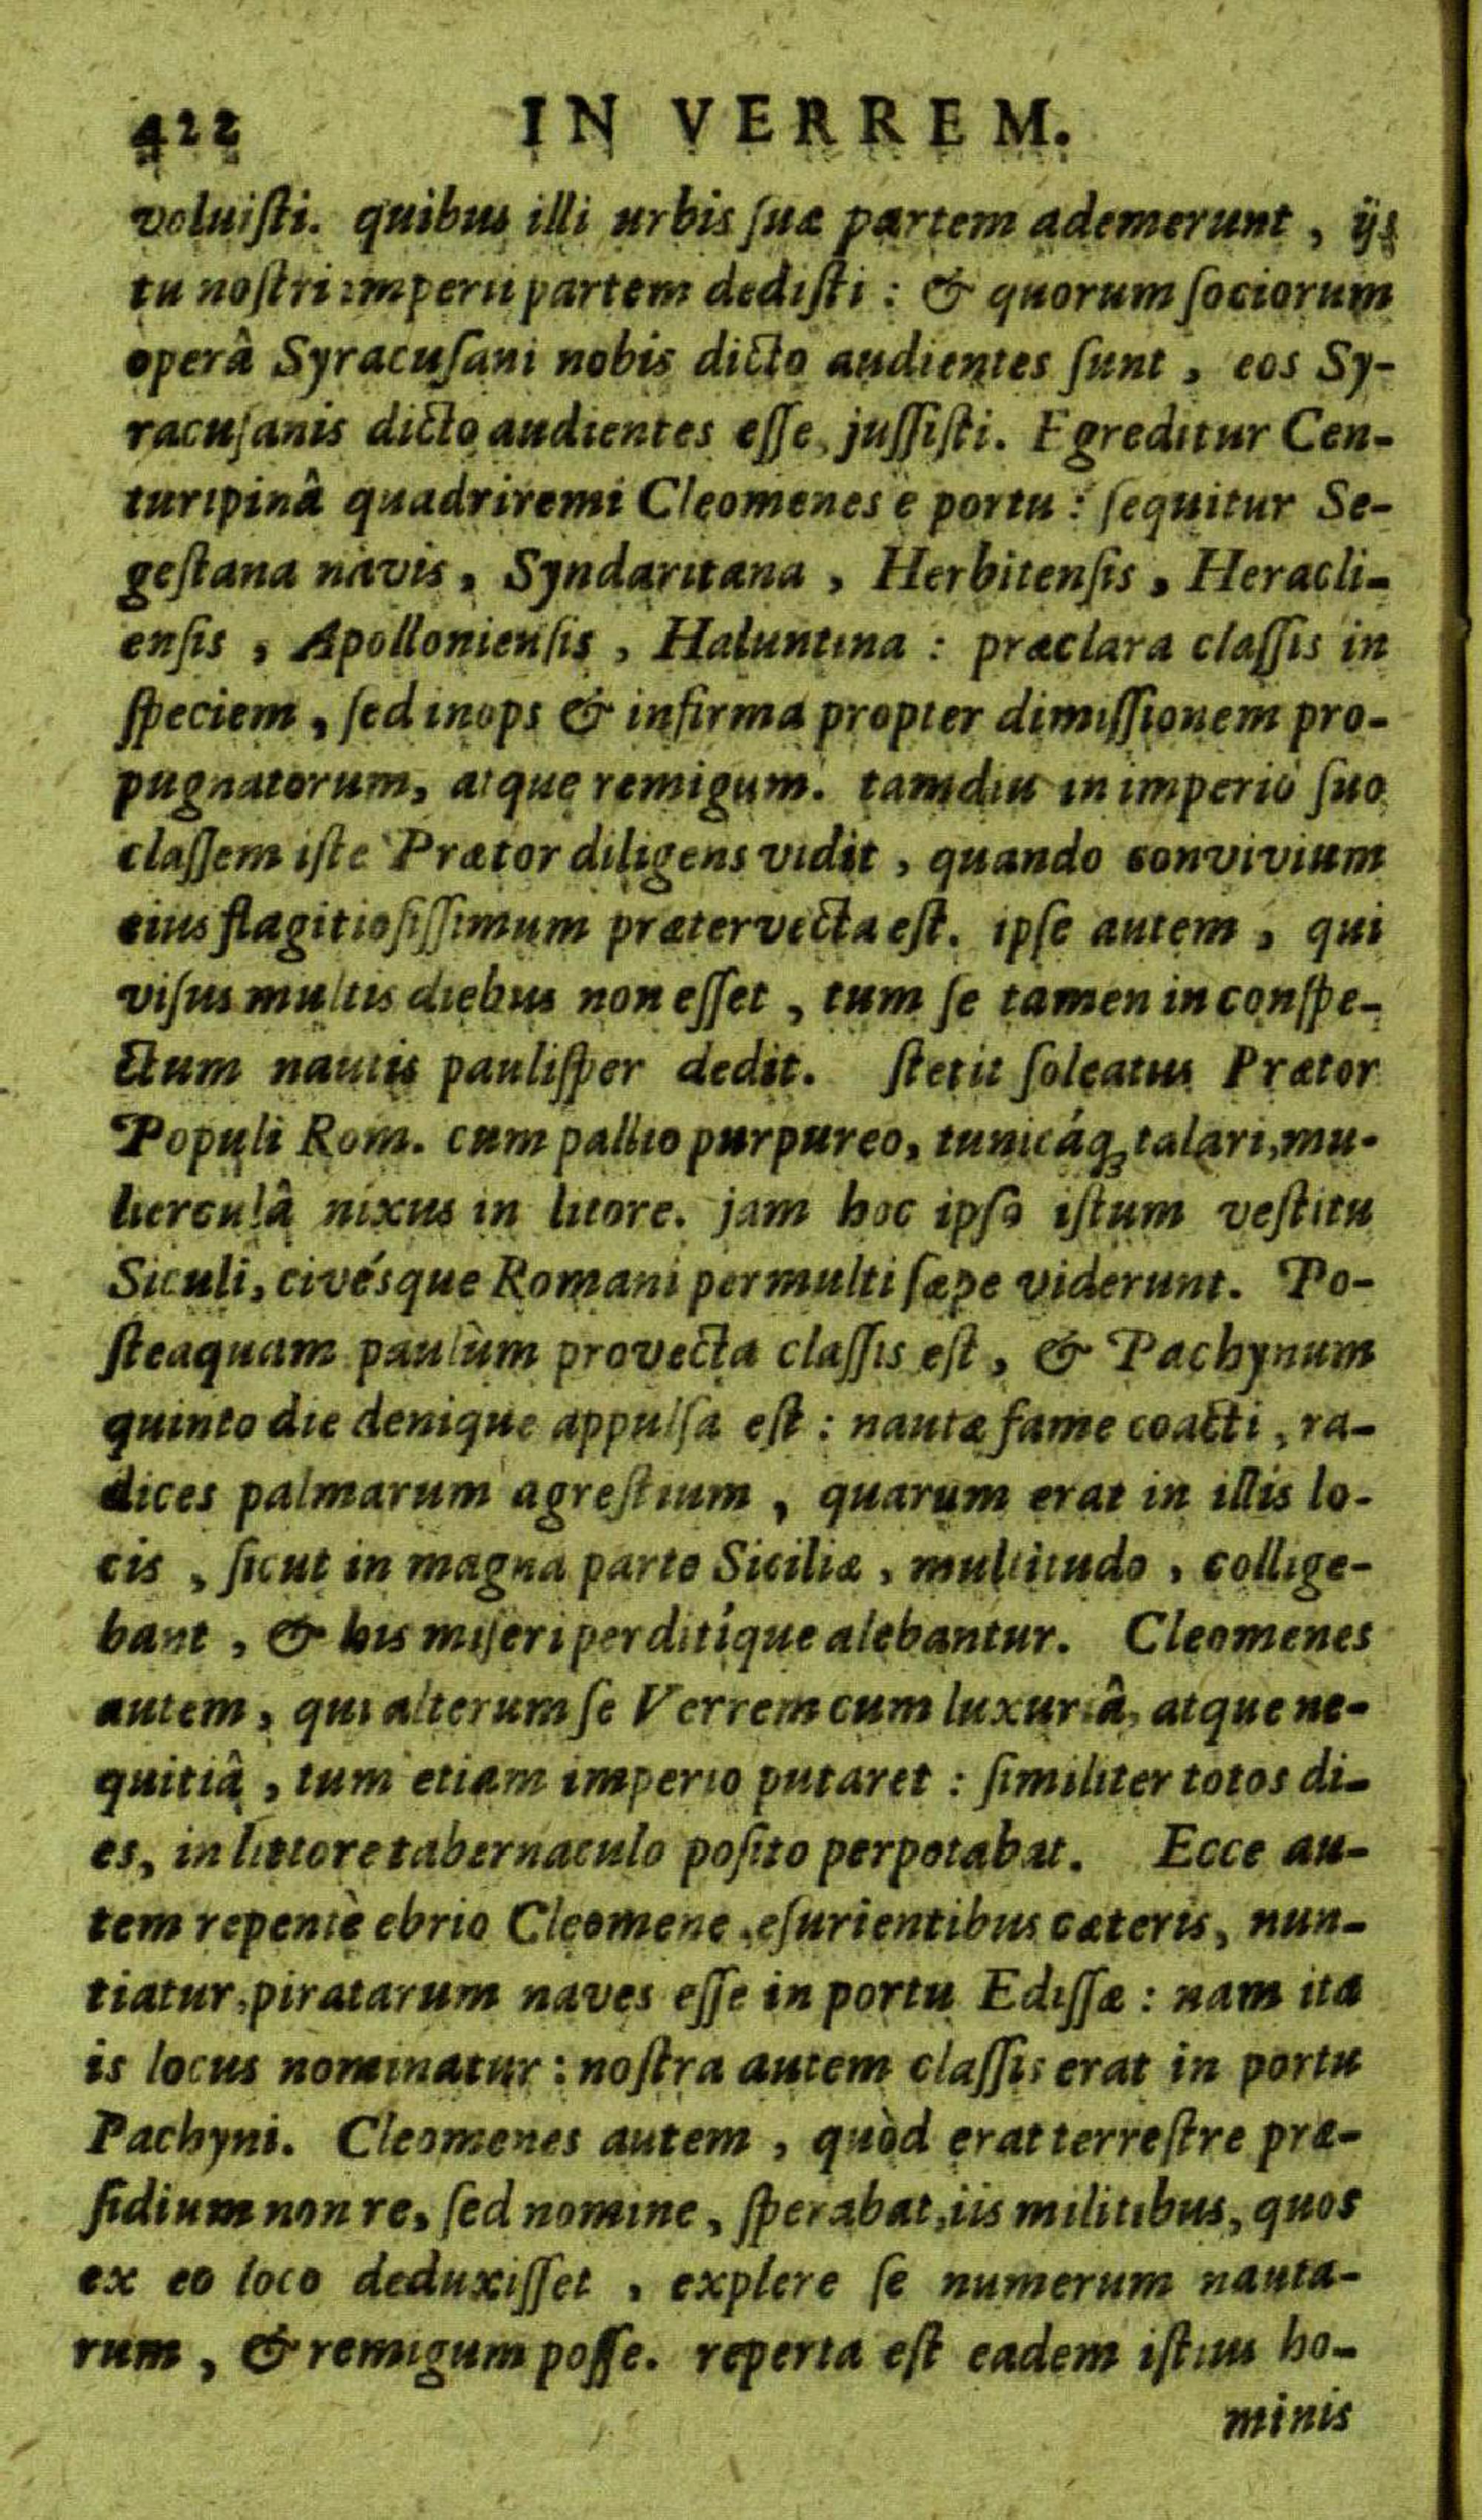 422 IN VERREM.
voluiſti. quibus illi urbis ſuæ partem ademerunt, ijs
tu noſtri imperii partem dediſti: & quorum ſociorum
operâ Syracuſani nobis dicto audientes ſunt, eos Sy-
racuſanis dicto audientes eſſe juſſiſti. Egreditur Cen-
turipinâ quadriremi Cleomenes è portu: ſequitur Se-
geſtana navis, Syndaritana, Herbitenſis, Heracli-
enſis, Apollonienſis, Haluntina: præclara claſſis in
ſpeciem, ſed inops & infirma propter dimiſſionem pro-
pugnatorum, atque remigum. tamdiu in imperio ſuo
claſſem iſte Prætor diligens vidit, quando convivium
eius flagitioſiſſimum prætervecta eſt. ipſe autem, qui
viſus multis diebus non eſſet, tum ſe tamen in conſpe-
ctum nautis pauliſper dedit. ſtetit ſoleatus Prætor
Populi Rom. cum pallio purpureo, tunicáq; talari, mu-
lierculâ nixus in litore. jam hoc ipſo iſtum veſtitu
Siculi, civésque Romani permulti ſæpe viderunt. Po-
ſteaquam paulùm provecta claſſis eſt, & Pachynum
quinto die denique appulſa eſt: nautæ fame coacti, ra-
dices palmarum agreſtium, quarum erat in illis lo-
cis, ſicut in magna parte Siciliæ, multitudo, collige-
bant, & his miſeri perditíque alebantur. Cleomenes
autem, qui alterum ſe Verrem cum luxuriâ, atque ne-
quitiâ, tum etiam imperio putaret: ſimiliter totos di-
es, in littore tabernaculo poſito perpotabat. Ecce au-
tem repentè ebrio Cleomene, eſurientibus cæteris, nun-
tiatur, piratarum naves eſſe in portu Ediſſæ: nam ita
is locus nominatur: noſtra autem claſſis erat in portu
Pachyni. Cleomenes autem, quòd erat terreſtre præ-
ſidium non re, ſed nomine, ſperabat, iis militibus, quos
ex eo loco deduxiſſet, explere ſe numerum nauta-
rum, & remigum poſſe. reperta eſt eadem iſtius ho-
minis